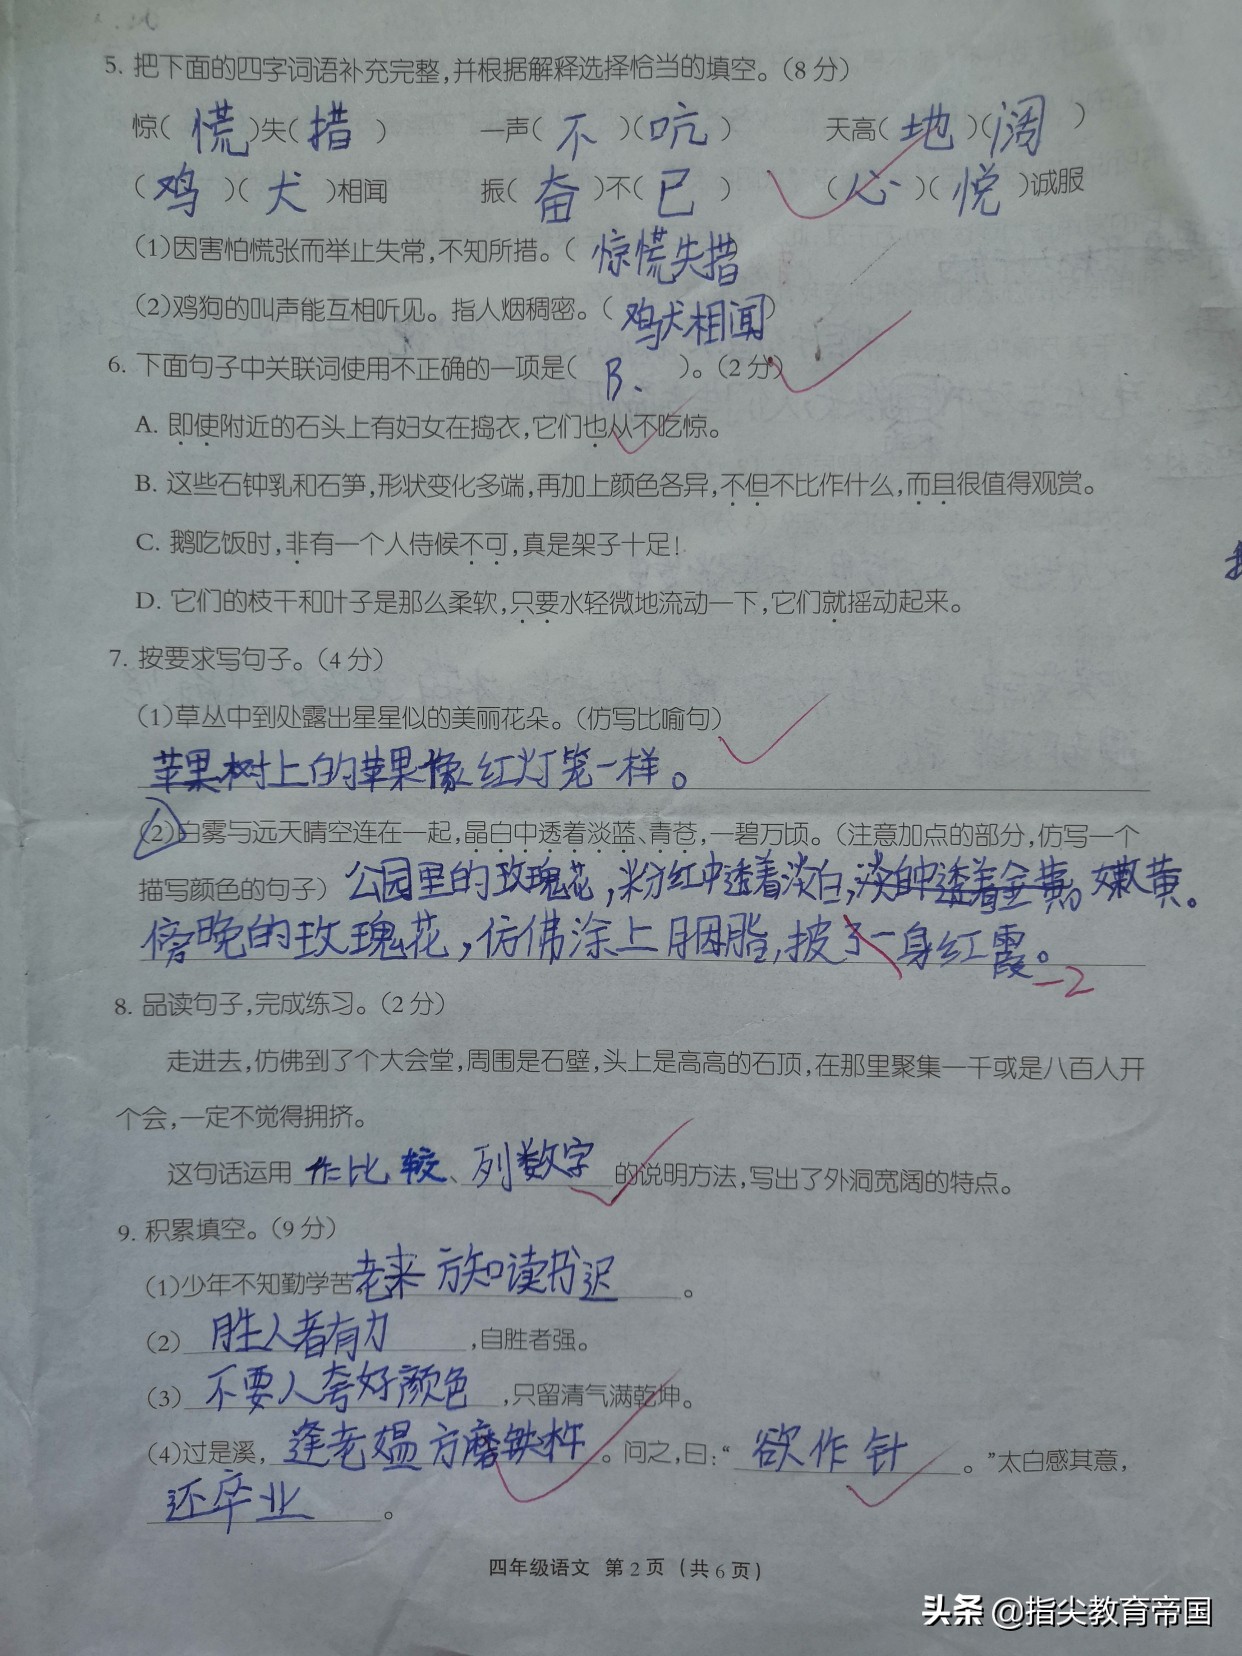 5. 把下面的四字词语补充完整,并根据解释选择恰当的填空。(8分)
惊( 慌 )失( 措 ) 一声( 不 )( 吭 ) 天高( 地 )( 阔 )
( 鸡 )( 犬 )相闻 振( 奋 )不( 已 ) ( 心 )( 悦 )诚服
(1)因害怕慌张而举止失常,不知所措。( 惊慌失措
(2)鸡狗的叫声能互相听见。指人烟稠密。( 鸡犬相闻)
6. 下面句子中关联词使用不正确的一项是( B、 )。(2分)
A. 即使附近的石头上有妇女在捣衣,它们也从不吃惊。
B. 这些石钟乳和石笋,形状变化多端,再加上颜色各异,不但不比作什么,而且很值得观赏。
C. 鹅吃饭时,非有一个人侍候不可,真是架子十足!
D. 它们的枝干和叶子是那么柔软,只要水轻微地流动一下,它们就摇动起来。
7. 按要求写句子。(4分)
(1)草丛中到处露出星星似的美丽花朵。(仿写比喻句)
苹果树上的苹果像红灯笼一样。
(2)白雾与远天晴空连在一起,晶白中透着淡蓝、青苍,一碧万顷。(注意加点的部分,仿写一个
描写颜色的句子) 公园里的玫瑰花,粉红中透着淡白,淡白中透着金黄。嫩黄。
傍晚的玫瑰花,仿佛涂上胭脂,披了一身红霞。 -2
8. 品读句子,完成练习。(2分)
走进去,仿佛到了个大会堂,周围是石壁,头上是高高的石顶,在那里聚集一千或是八百人开
个会,一定不觉得拥挤。
这句话运用 作比较、列数字 的说明方法,写出了外洞宽阔的特点。
9. 积累填空。(9分)
(1)少年不知勤学苦 老来方知读书迟。
(2) 胜人者有力,自胜者强。
(3) 不要人夸好颜色,只留清气满乾坤。
(4)过是溪, 逢老媪方磨铁杵。问之,曰:“ 欲作针。”太白感其意,
还卒业。
四年级语文 第2页 (共6页)
头条 @指尖教育帝国